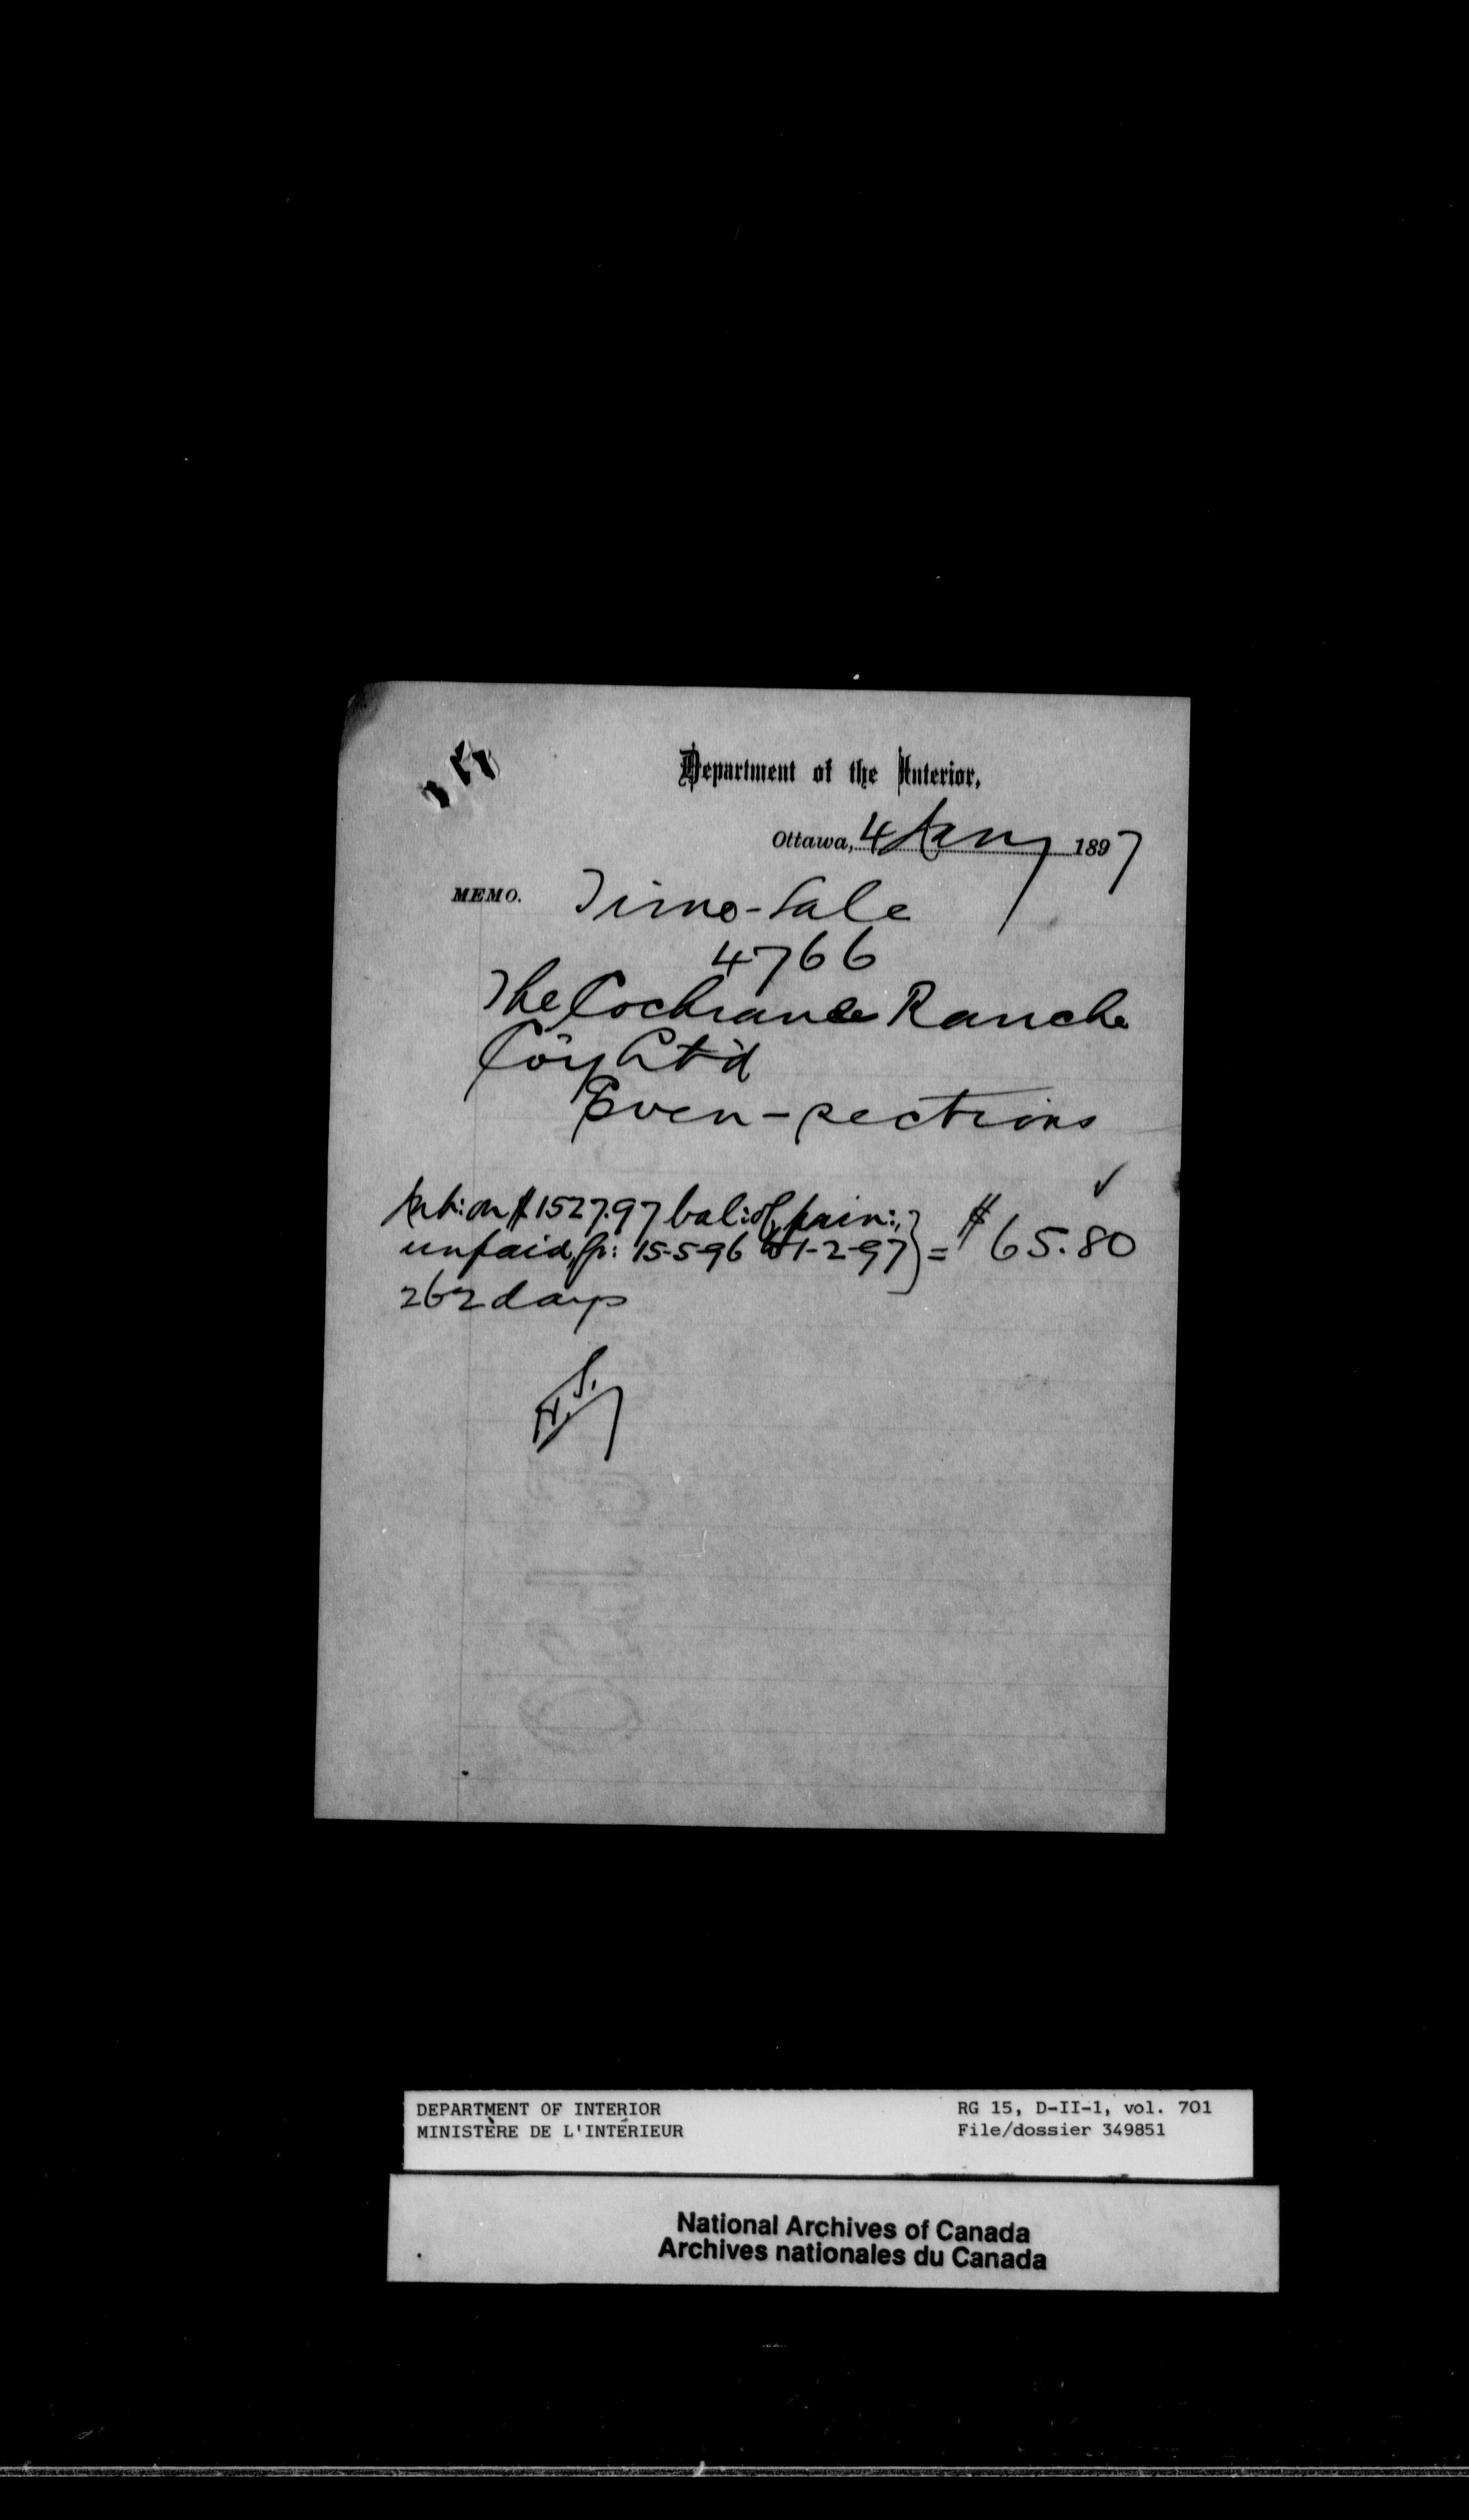 Department of the Interior,
Ottawa, 4 Jany 1897
MEMO. Time-Sale
4766
The Cochrane Ranche
Coy Lt'd
Even-sections
Int: on $1527.97 bal: of prin:,
unpaid, fr: 15-5-96 to 1-2-97 } = $65.80
262 days
DEPARTMENT OF INTERIOR
MINISTÈRE DE L'INTÉRIEUR
RG 15, D-II-1, vol. 701
File/dossier 349851
National Archives of Canada
Archives nationales du Canada